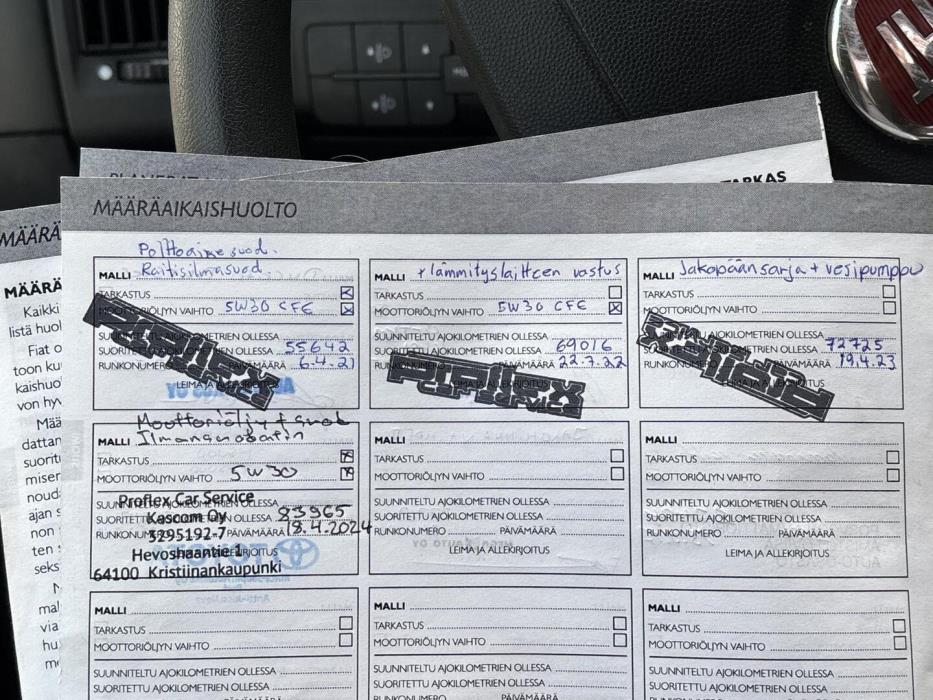 TARKAS
MÄÄRÄ
MÄÄRÄAIKAISHUOLTO
MÄÄRÄ
Kaikki
listä huol
Fiat o
toon ku
kaishuo
von hyv
Mää
dattan
suorit
miser
noud
ajan s
non
ten
seks
mal
via
hu
Polttoainesuod.
MALLI Raitisilmasuod.
TARKASTUS
MOOTTORIÖLJYN VAIHTO 5W30 CFE
OLLESSA
SUORITETTU AJOKILOMETRIEN OLLESSA 55642
RUNKONUMERO PÄIVÄMÄÄRÄ 6.4.21
LEIMA JA ALLEKIRJOITUS
MALLI + lämmityslaitteen vastus
TARKASTUS
MOOTTORIÖLJYN VAIHTO 5W30 CFE
SUUNNITELTU AJOKILOMETRIEN OLLESSA
SUORITETTU AJOKILOMETRIEN OLLESSA 69016
RUNKONUMERO PÄIVÄMÄÄRÄ 22.7.22
MALLI Jakopäänsarja + vesipumppu
TARKASTUS
MOOTTORIÖLJYN VAIHTO
AJOKILOMETRIEN OLLESSA
OLLESSA 72725
RUNKONUMERO PÄIVÄMÄÄRÄ 19.4.23
LEIMA JA ALLEKIRJOITUS
Moottoriöljy + suod
MALLI Ilmansuodatin
TARKASTUS
MOOTTORIÖLJYN VAIHTO 5W30
Proflex Car Service
SUORITETTU OLLESSA 83965
Kascom Oy
RUNKONUMERO PÄIVÄMÄÄRÄ 18.4.2024
3295192-7
Hevoshaantie 1
64100 Kristiinankaupunki
MALLI
TARKASTUS
MOOTTORIÖLJYN VAIHTO
SUUNNITELTU AJOKILOMETRIEN OLLESSA
SUORITETTU AJOKILOMETRIEN OLLESSA
RUNKONUMERO PÄIVÄMÄÄRÄ
LEIMA JA ALLEKIRJOITUS
MALLI
TARKASTUS
MOOTTORIÖLJYN VAIHTO
SUUNNITELTU AJOKILOMETRIEN OLLESSA
SUORITETTU AJOKILOMETRIEN OLLESSA
RUNKONUMERO PÄIVÄMÄÄRÄ
LEIMA JA ALLEKIRJOITUS
MALLI
TARKASTUS
MOOTTORIÖLJYN VAIHTO
SUUNNITELTU AJOKILOMETRIEN OLLESSA
SUORITETTU AJOKILOMETRIEN OLLESSA
MALLI
TARKASTUS
MOOTTORIÖLJYN VAIHTO
SUUNNITELTU AJOKILOMETRIEN OLLESSA
SUORITETTU AJOKILOMETRIEN OLLESSA
RUNKONUMERO PÄIVÄMÄÄRÄ
MALLI
TARKASTUS
MOOTTORIÖLJYN VAIHTO
SUUNNITELTU AJOKILOMETRIEN OLLESSA
SUORITETTU AJOKILOMETRIEN OLLESSA
RUNKONUMERO PÄIVÄMÄÄRÄ